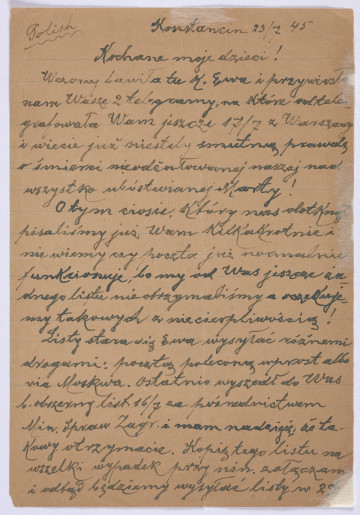 Polish
Konstancin 23/7 45
Kochane moje dzieci!
Wczoraj bawiła tu K. Ewa i przywiozła
nam Wasze 2 telegramy, na które odtele-
grafowała Wam jeszcze 17/7 z Warszawy
i wiecie już niestety smutną prawdę
o śmierci nieodżałowanej naszej nad
wszystko ubóstwianej Marty!
O tym ciosie, który nas dotknął
pisaliśmy już Wam kilkakrotnie i
nie wiemy czy poczta już normalnie
funkcionuje, bo my od Was jeszcze ża-
dnego listu nie otrzymaliśmy a oczekuje-
my takowych z niecierpliwością!
Listy stara się Ewa wysyłać różnemi
drogami: pocztą poleconą wprost albo
via Moskwa. Ostatnio wyszedł do Was
b. obszerny list 16/7 za pośrednictwem
Min. Spraw Zagr. i mam nadzieję, że ta-
kowy otrzymacie. Kopię tego listu na
wszelki wypadek przy niniejszym załączam
i odtąd będziemy wysyłać listy w 2